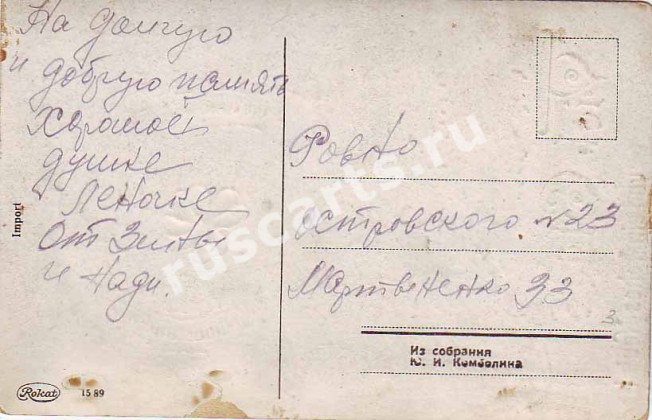 На долгую
и добрую память
хорошей
душке
Леночке
От Зины
и Нади.
Ровно
островского № 23
Мартвененко ЗЗ
Из собрания
Ю. И. Комболина
Import
Rokat
1589
ruscarts.ru